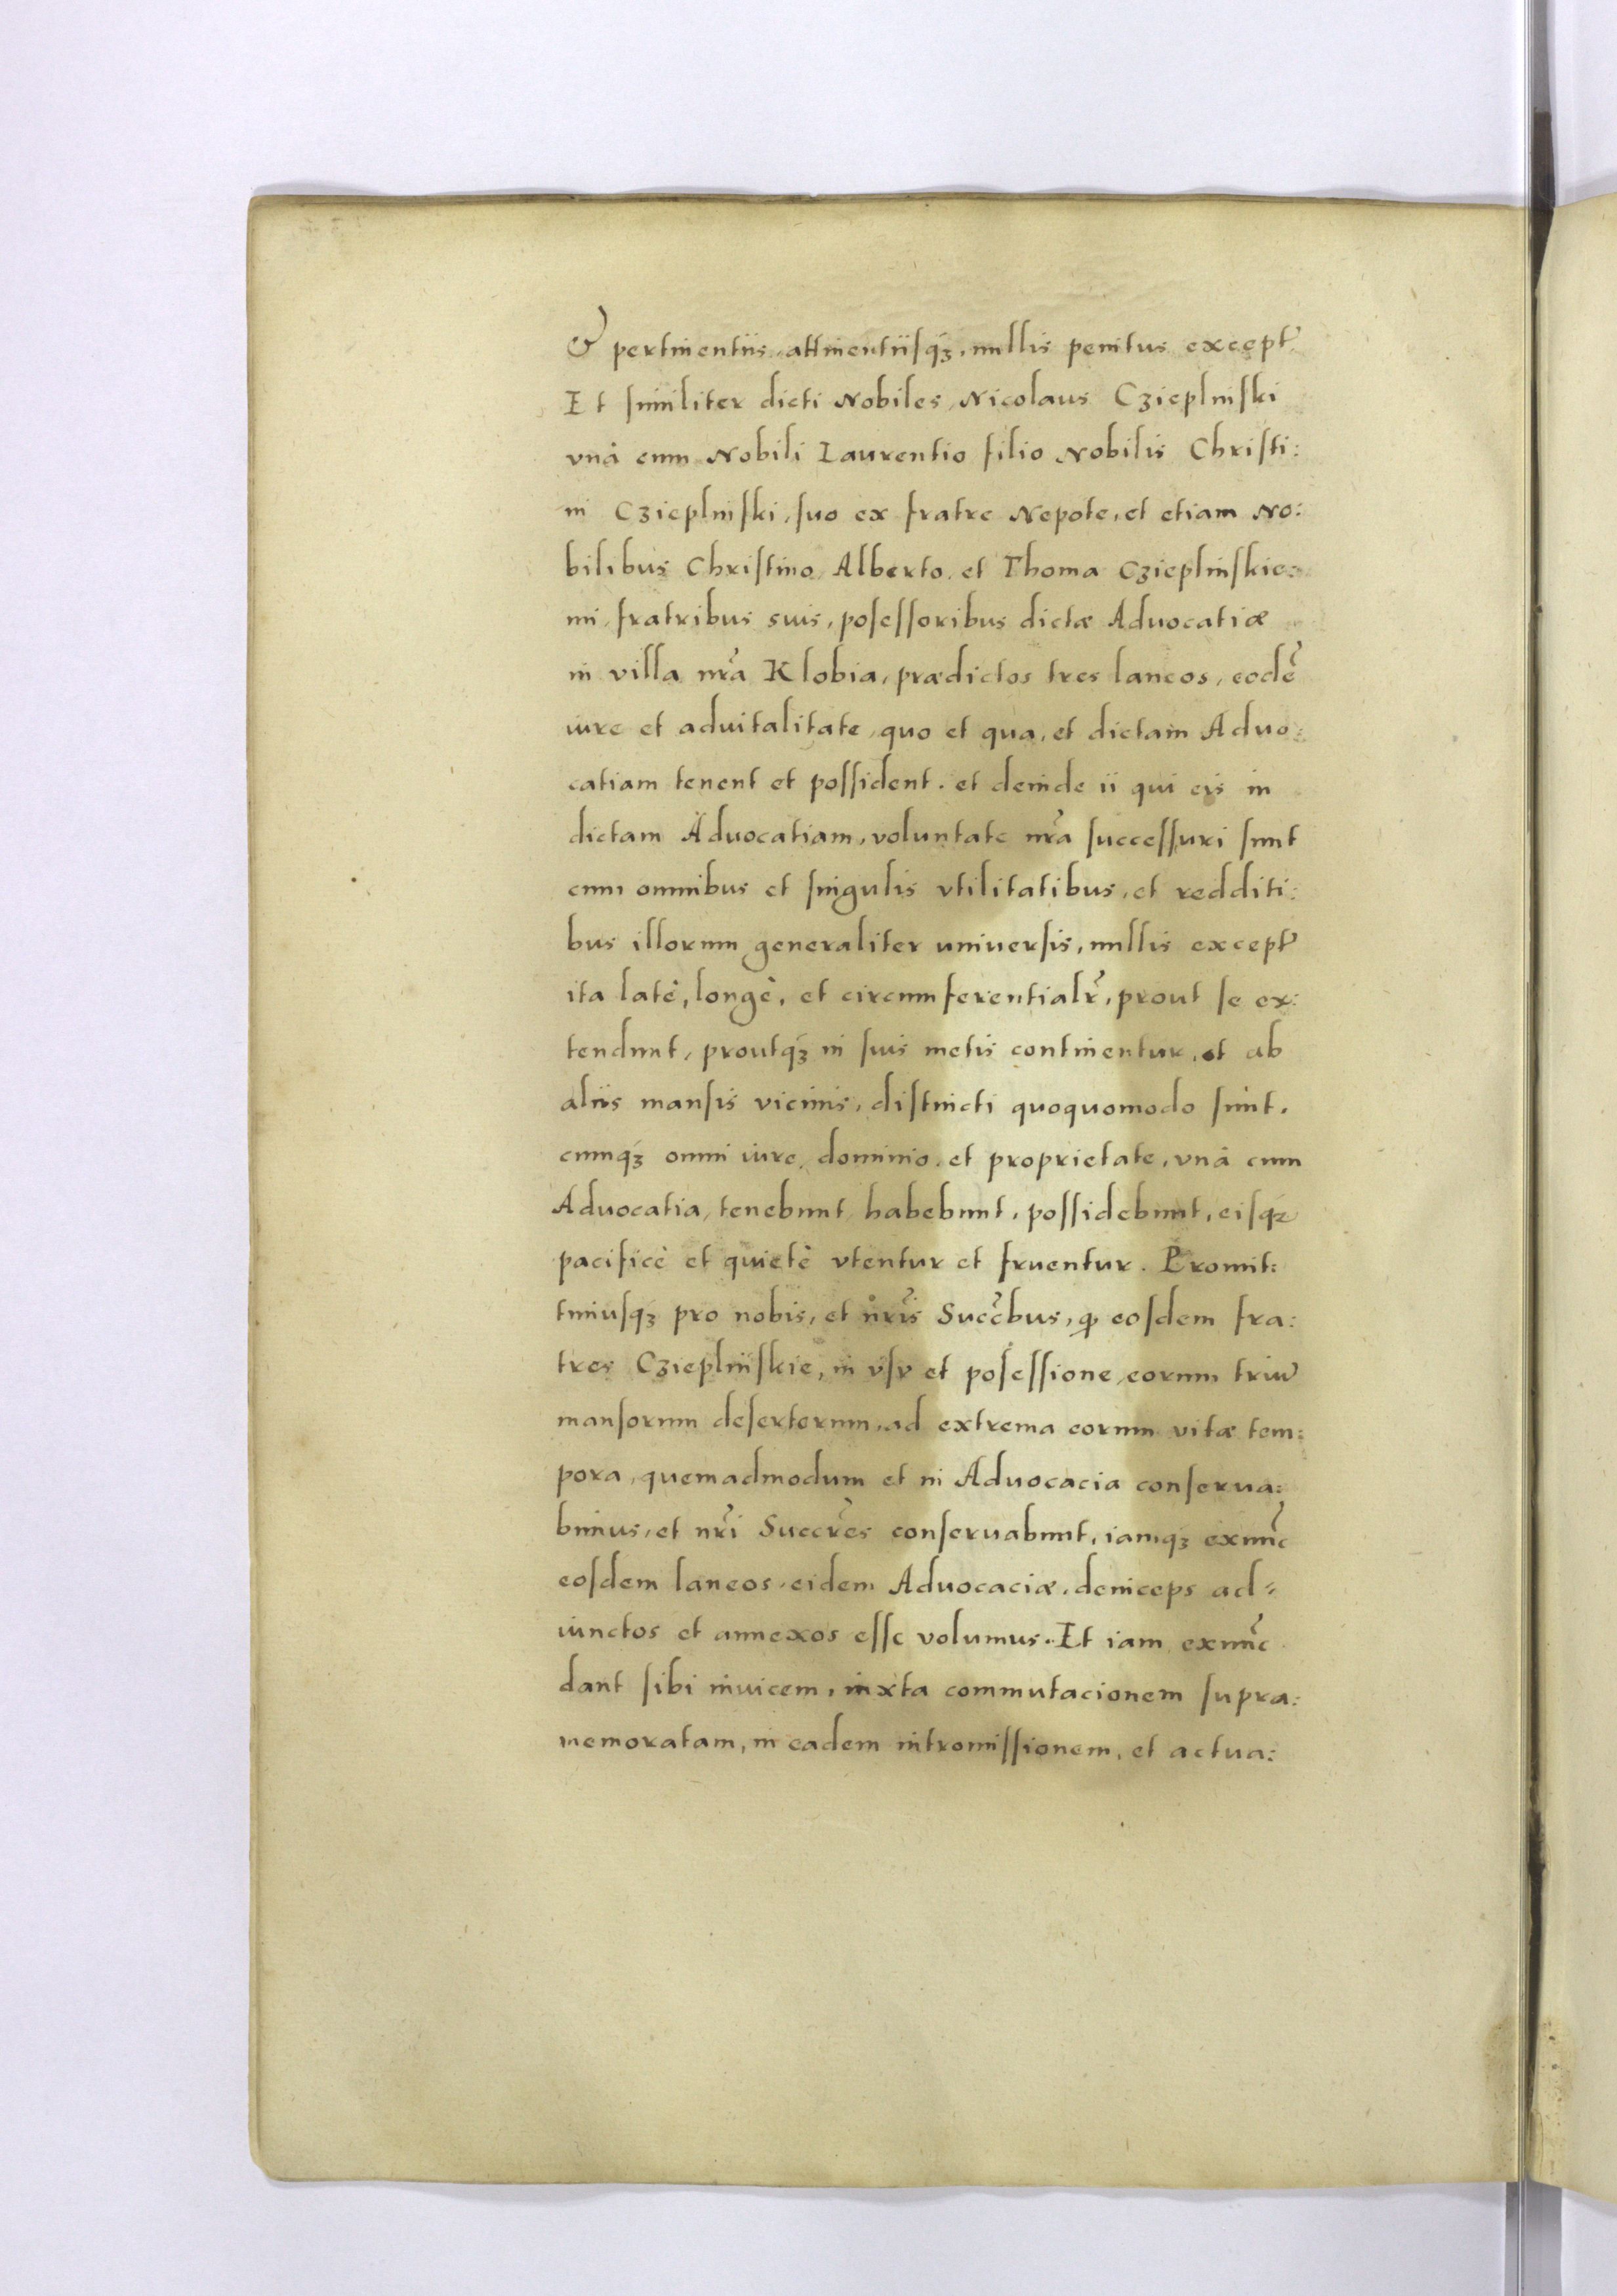 & pertinentiis, attinentiisq́ꝫ, nullis penitus except̃
Et similiter dicti Nobiles, Nicolaus Czieplinſki
vnà cum Nobili Laurentio filio Nobilis Chriſti:
ni Czieplinſki, ſuo ex fratre Nepote, et etiam No:
bilibus Chriſtino, Alberto, et Thoma Czieplinſkie:
mi, fratribus suis, poſeſſoribus dictæ Aduocatiæ
in villa nr̃a Klobia, prædictos tres laneos, eodẽ
iure et aduitalitate, quo et qua, et dictam Aduo:
catiam tenent et poſſident. et deinde ii qui eis in
dictam Aduocatiam, voluntate nr̃a ſucceſſuri ſunt
cum omnibus et ſingulis vtilitatibus, et redditi:
bus illorum generaliter uniuerſis, nullis except̃
ita latè, longè, et circumferentialr̃, prout ſe ex:
tendunt, proutq́ꝫ in ſuis metis continentur, et ab
aliis manſis vicinis, diſtincti quoquomodo ſunt.
cumq́ꝫ omni iure, dominio, et proprietate, vnà cum
Aduocatia, tenebunt, habebunt, poſſidebunt, eiſq́ꝫ
pacificè et quietè vtentur et fruentur. Promit:
timuſqꝫ pro nobis, et nr̃is Succ̃bus, ꝙ eoſdem fra:
tres Czieplinſkie, in vſu et poſeſſione, eorum triũ
manſorum deſertorum, ad extrema eorum vitæ tem:
pora, quemadmodum et in Aduocacia conſerua:
bimus, et nr̃i Succr̃es conſeruabunt, iamq́ꝫ exnũc
eoſdem laneos, eidem Aduocaciæ, deinceps ad:
iunctos et annexos eſſe volumus. Et iam exnũc
dant ſibi inuicem, iuxta commutacionem ſupra:
memoratam, in eadem intromiſſionem, et actua: